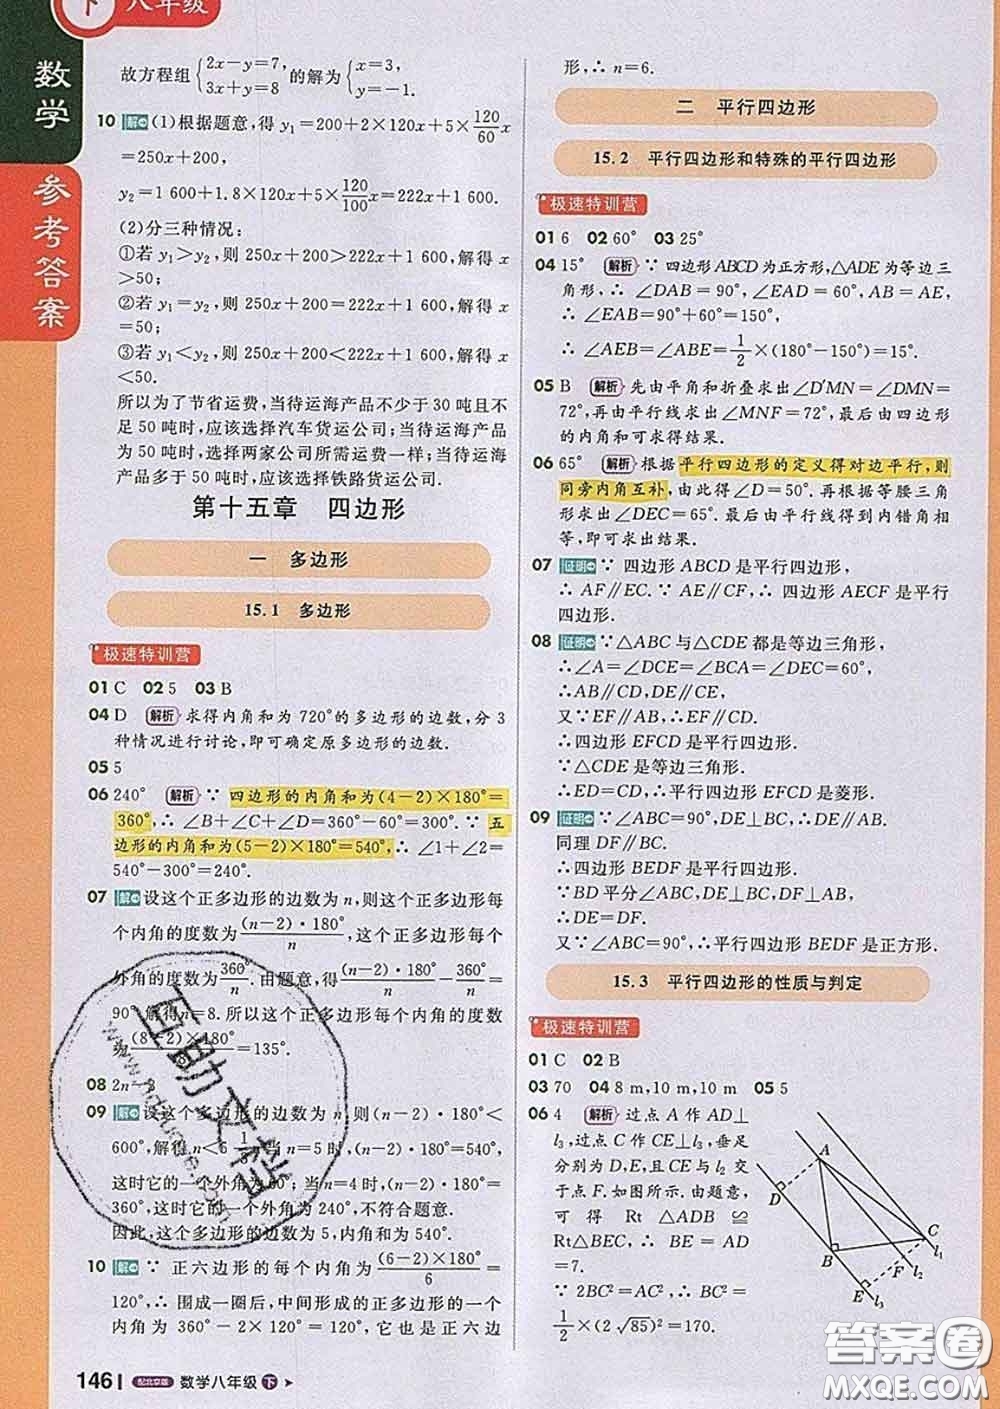 下 八年级
数学
参考答案
故方程组{2x-y=7, 3x+y=8 的解为{x=3, y=-1.
10 解 (1)根据题意,得 y₁=200+2×120x+5×120/60x
=250x+200,
y₂=1 600+1.8×120x+5×120/100x=222x+1 600.
(2)分三种情况:
①若 y₁>y₂,则 250x+200>222x+1 600,解得 x
>50;
②若 y₁=y₂,则 250x+200=222x+1 600,解得 x
=50;
③若 y₁<y₂,则 250x+200<222x+1 600,解得 x
<50.
所以为了节省运费,当待运海产品不少于 30 吨且不
足 50 吨时,应该选择汽车货运公司;当待运海产品
为 50 吨时,选择两家公司所需运费一样;当待运海
产品多于 50 吨时,应该选择铁路货运公司.
第十五章 四边形
一 多边形
15.1 多边形
极速特训营
01 C 02 5 03 B
04 D 解析 求得内角和为 720°的多边形的边数,分 3
种情况进行讨论,即可确定原多边形的边数.
05 5
06 240° 解析 ∵ 四边形的内角和为(4-2)×180°=
360°,∴ ∠B+∠C+∠D=360°-60°=300°.∵ 五
边形的内角和为(5-2)×180°=540°,∴ ∠1+∠2=
540°-300°=240°.
07 解 设这个正多边形的边数为 n,则这个正多边形每
个内角的度数为(n-2)·180°/n,这个正多边形每个
外角的度数为360°/n.由题意,得(n-2)·180°/n-360°/n=
90°,解得 n=8.所以这个正多边形每个内角的度数
为(8-2)×180°/8=135°.
08 2n-3
09 解 设这个多边形的边数为 n,则(n-2)·180°<
600°,解得 n<5 1/3.当 n=5 时,(n-2)·180°=540°,
这时它的一个外角为60°;当 n=4时,(n-2)·180°=
360°,这时它的一个外角为 240°,不符合题意.
因此,这个多边形的边数为 5,内角和为 540°.
10 解 ∵ 正六边形的每个内角为(6-2)×180°/6=
120°,∴ 围成一圈后,中间形成的正多边形的一个
内角为 360°-2×120°=120°,它也是正六边
146 配北京版 数学八年级 下
形,∴ n=6.
二 平行四边形
15.2 平行四边形和特殊的平行四边形
极速特训营
01 6 02 60° 03 25°
04 15° 解析 ∵ 四边形 ABCD 为正方形,△ADE为等边三
角形,∴ ∠DAB=90°,∠EAD=60°,AB=AE,
∴ ∠EAB=90°+60°=150°,
∴ ∠AEB=∠ABE=1/2×(180°-150°)=15°.
05 B 解析 先由平角和折叠求出∠D′MN=∠DMN=
72°,再由平行线求出∠MNF=72°,最后由四边形
的内角和可求得结果.
06 65° 解析 根据平行四边形的定义得对边平行,则
同旁内角互补,由此得∠D=50°.再根据等腰三角
形求出∠DEC=65°.最后由平行线得到内错角相
等,即可求出结果.
07 证明 ∵ 四边形 ABCD 是平行四边形,
∴ AF∥EC.∵ AE∥CF,∴ 四边形 AECF 是平行
四边形.
08 证明 ∵△ABC 与△CDE 都是等边三角形,
∴∠A=∠DCE=∠BCA=∠DEC=60°,
∴AB∥CD,DE∥CE,
又∵EF∥AB,∴EF∥CD.
∴四边形 EFCD 是平行四边形.
∵△CDE 是等边三角形.
∴ED=CD,∴平行四边形 EFCD 是菱形.
09 证明 ∵∠ABC=90°,DE⊥BC,∴DE∥AB.
同理 DF∥BC.
∴四边形 BEDF 是平行四边形.
∵BD 平分∠ABC,DE⊥BC,DF⊥AB,
∴DE=DF.
又∵∠ABC=90°,∴平行四边形 BEDF 是正方形.
15.3 平行四边形的性质与判定
极速特训营
01 C 02 B
03 70 04 8 m,10 m,10 m 05 5
06 4 解析 过点 A 作 AD⊥
l₃,过点 C 作 CE⊥l₃,垂足
分别为 D,E,且 CE 与 l₂ 交
于点 F.如图所示.由题意,
可得 Rt △ADB ≌
Rt△BEC,∴ BE = AD
=7.
∵ 2BC²=AC²,∴ BC²=
1/2×(2√85)²=170.
A
D
B
C
F
E
l₁
l₂
l₃
互助文档
答案圈
MXQE.COM